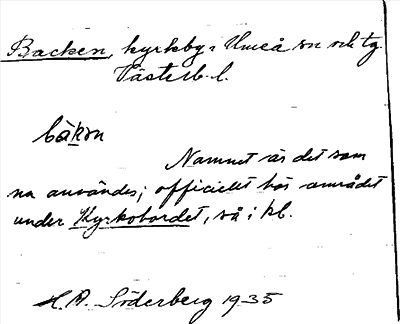 Backen, kyrkby i Umeå sn och tg.
Västerb. l.
bàkɔn
Namnet är det som
nu användes; officiellt hör området
under Kyrkobordet, så i kb.
H. A. Söderberg 1935